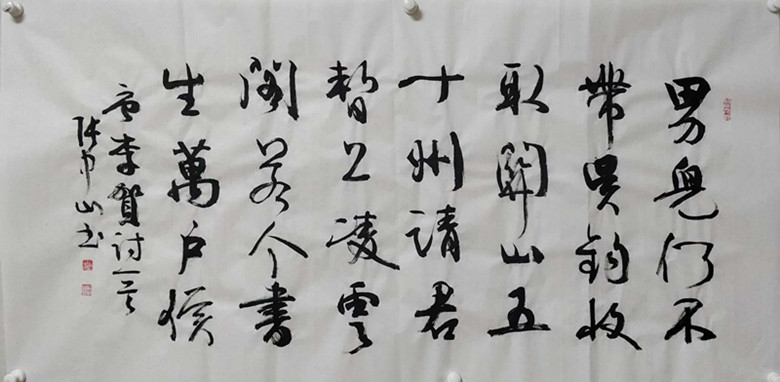 男兒何不
帶吳鈎收
取關山五
十州請君
暫上凌雲
閣若个書
生萬户侯
唐李賀詩一首
張山书